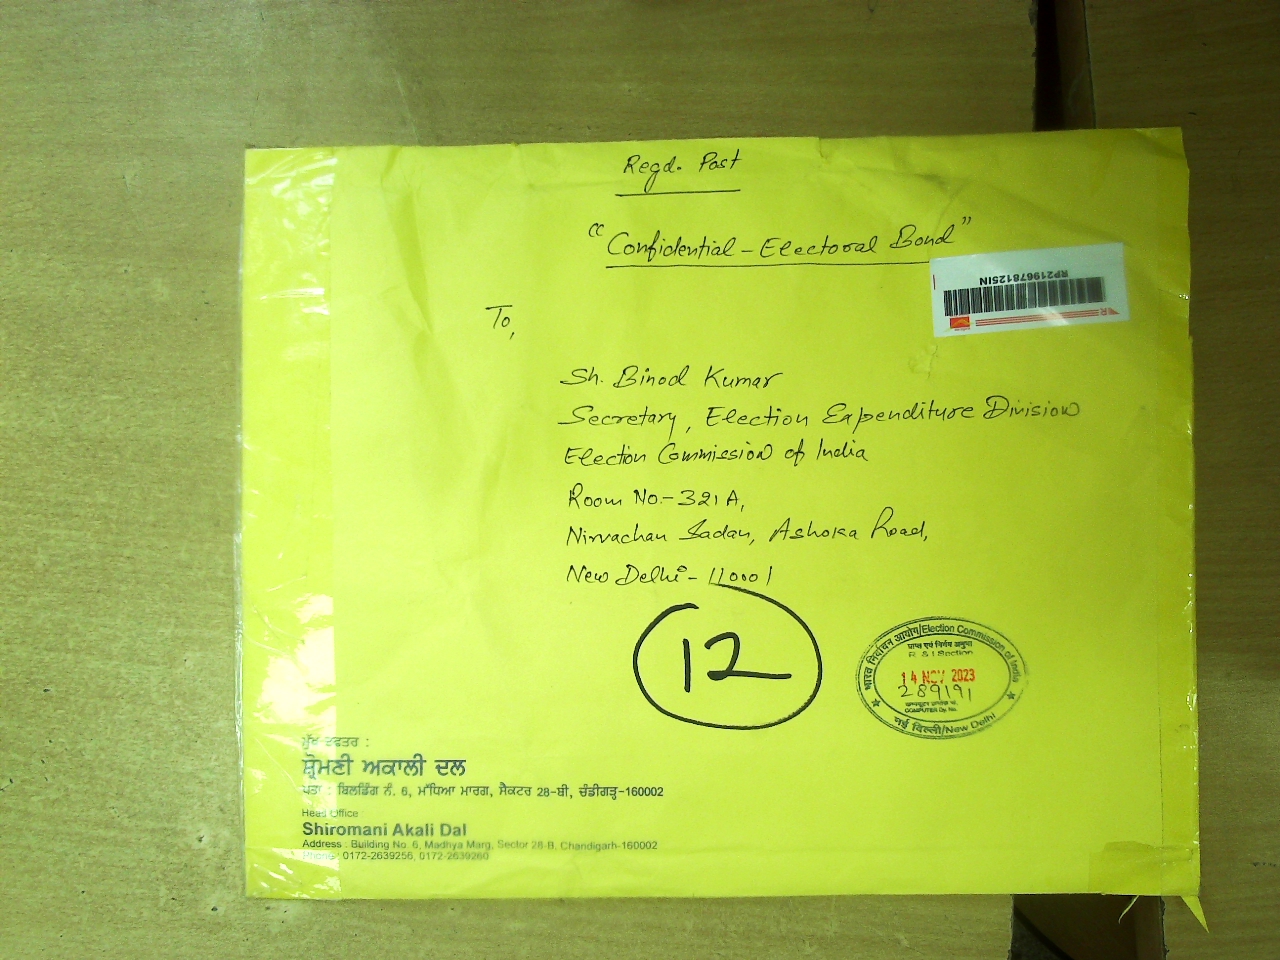 Regd. Post
"Confidential - Electoral Bond"
RP219678125IN
To,
Sh. Binod Kumar
Secretary, Election Expenditure Division
Election Commission of India
Room No.- 321A,
Nirvachan Sadan, Ashoka Road,
New Delhi - 110001
12
भारत निर्वाचन आयोग/Election Commission of India
R & I Section
14 NOV 2023
289191
COMPUTER Dy. No.
नई दिल्ली/New Delhi
ਮੁੱਖ ਦਫਤਰ :
ਸ਼੍ਰੋਮਣੀ ਅਕਾਲੀ ਦਲ
ਪਤਾ : ਬਿਲਡਿੰਗ ਨੰ. 6, ਮੱਧਿਆ ਮਾਰਗ, ਸੈਕਟਰ 28-ਬੀ, ਚੰਡੀਗੜ੍ਹ-160002
Head Office
Shiromani Akali Dal
Address : Building No. 6, Madhya Marg, Sector 28-B, Chandigarh-160002
Phone : 0172-2639256, 0172-2639260